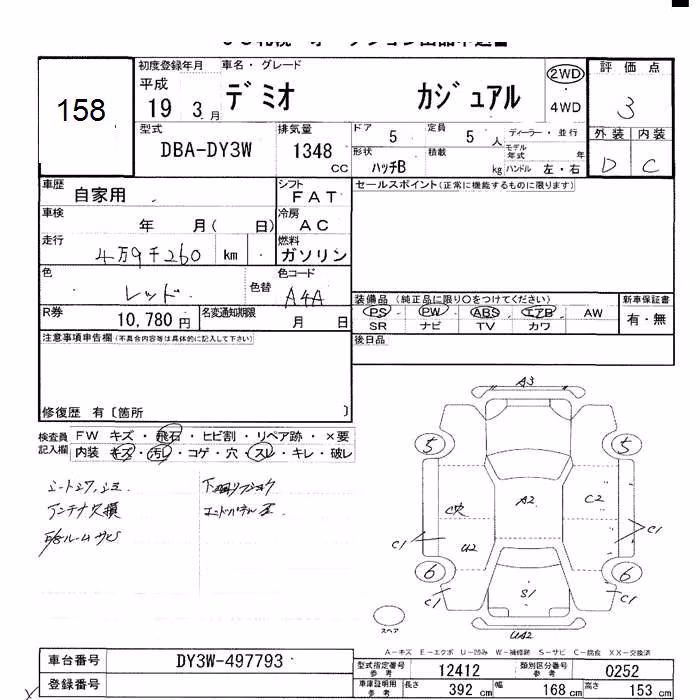 158
初度登録年月 車名・グレード
平成 19 3月 デミオ カジュアル 2WD 4WD
評価点 3
外装 内装
D C
型式 DBA-DY3W
排気量 1348 CC
ドア 5 定員 5 人 ディーラー・並行
形状 ハッチB 積載 kg モデル年式 年 ハンドル 左・右
車歴 自家用
シフト FAT
セールスポイント(正常に機能するものに限ります)
車検 年 月( 日)
冷房 AC
走行 4万9千260 km
燃料 ガソリン
色 レッド 色替
色コード A4A
装備品 (純正品に限り○をつけてください) 新車保証書
PS PW ABS エアB AW 有・無
SR ナビ TV カワ
R券 10,780円 名変通知期限 月 日
後日品
注意事項申告欄(不具合内容等は具体的に記入して下さい)
修復歴 有〔箇所 〕
検査員記入欄 FW キズ・飛石・ヒビ割・リペア跡・×要
内装 キズ・汚れ・コゲ・穴・スレ・キレ・破レ
アンテナ欠損
A3
5 5
A2 C2
U2
C1 C1
6 6
C1 S1 C1
スペア
UA2
A-キズ E-エクボ U-凹み W-補修跡 S-サビ C-腐食 XX-交換済
車台番号 DY3W-497793
型式指定番号 参考 12412 類別区分番号 参考 0252
登録番号
車庫証明用 参考 長さ 392 cm 幅 168 cm 高さ 153 cm